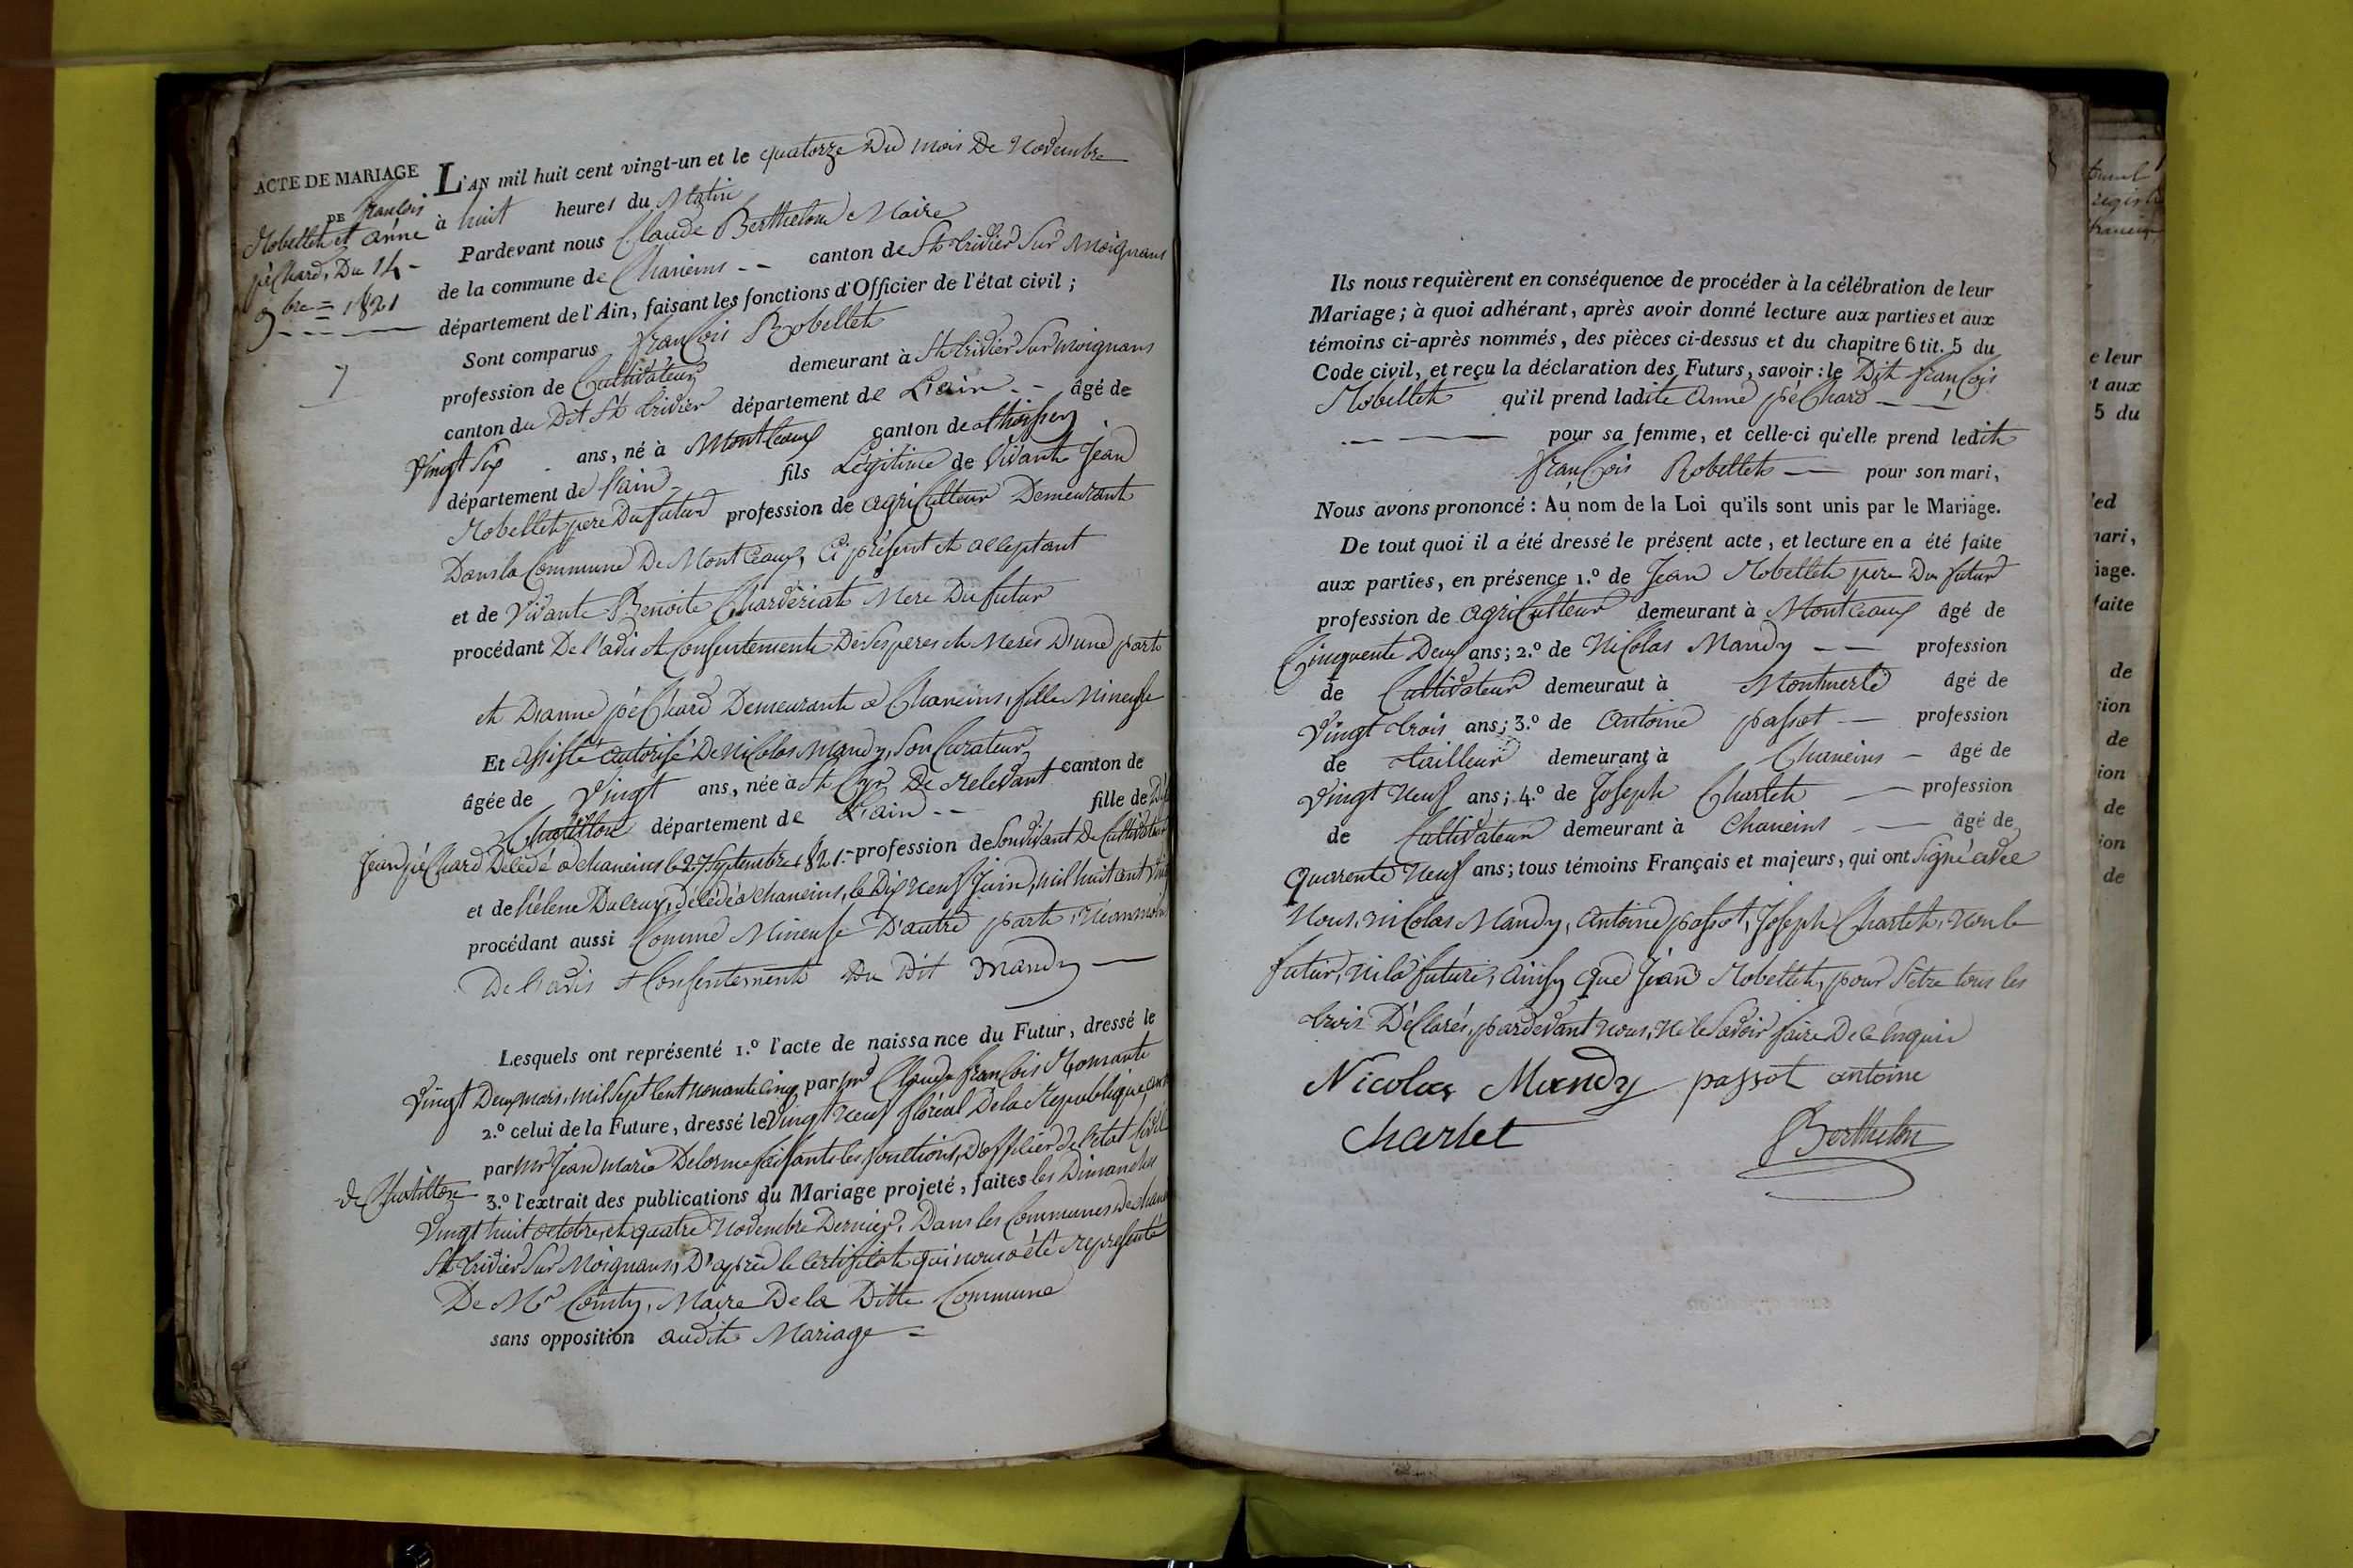 ACTE DE MARIAGE
DE françois
Robellet et anne
péChard, Du 14 -
9bre = 1821
7
L'AN mil huit cent vingt-un et le quatorze Du mois De Novembre
à huit heures du Matin
Pardevant nous Claude Berthelon Maire
de la commune de Chaneins -- canton de St trivier Sur Moignans
département de l'Ain, faisant les fonctions d'Officier de l'état civil ;
Sont comparus françois Robellet
profession de Cultivateur demeurant à St trivier Sur moignans
canton du Dit St trivier département de L'ain -- âgé de
Vingt Six ans, né à Montceaux canton de thoissey
département de l'ain - fils Légitime de Vivant Jean
Robellet pere Du futur profession de agriCulteur Demeurant
Dans la Commune De Montceaux, Ci présent et acceptant
et de Vivante Benoite Charderiat Mere Du futur
procédant De l'avis et Consentement De Ses peres et Meres D'une part
et D'anne péChard Demeurante a Chaneins, fille Mineuse
Et assisté autorisé De Nicolas Mandy, Son Curateur
âgée de Vingt ans, née à St Cyr De relevant canton de
Chatillon département de L'ain -- fille de
Jean péChard Décédé a chaneins le 27 Septembre 1821.- profession de Son vivant De Cultivateur
et de hélene Ducruy, Décédé a chaneins, le Dix neuf Juin, mil huit cent
procédant aussi Comme Mineuse D'autre part, Néanmoins
De l'avis et Consentement Du Dit Mandy —
Lesquels ont représenté 1.º l'acte de naissance du Futur, dressé le
Vingt Deux mars, mil Sept Cent nonante Cinq par mr Claude françois
2.º celui de la Future, dressé le Vingt neuf floréal De la Republique
par Mr Jean Marie Delorme faisant les fonctions, D'officier De l'état Civil
-de Chatillon 3.º l'extrait des publications du Mariage projeté, faites les Dimanches
Vingt huit octobre, et quatre Novembre Dernier. Dans les Communes De
St trivier Sur Moignans, D'après le Certificat qui nous a été représenté
De Mr Comty, Maire De la Ditte Commune
sans opposition audit Mariage =
Ils nous requièrent en conséquence de procéder à la célébration de leur
Mariage ; à quoi adhérant, après avoir donné lecture aux parties et aux
témoins ci-après nommés, des pièces ci-dessus et du chapitre 6 tit. 5 du
Code civil, et reçu la déclaration des Futurs, savoir : le Dit françois
Robellet qu'il prend ladite Anne péChard --
-- — pour sa femme, et celle-ci qu'elle prend ledit
françois Robellet — pour son mari,
Nous avons prononcé : Au nom de la Loi qu'ils sont unis par le Mariage.
De tout quoi il a été dressé le présent acte, et lecture en a été faite
aux parties, en présence 1.º de Jean Robellet pere Du futur
profession de agriCulteur demeurant à Montceaux âgé de
Cinquente Deux ans ; 2.º de NiColas Mandy -- profession
de Cultivateur demeuraut à Montmerle âgé de
Vingt trois ans ; 3.º de Antoine passot — profession
de tailleur demeurant à Chaneins - âgé de
Vingt Neuf ans ; 4.º de Joseph Charlet — profession
de Cultivateur demeurant à Chaneins — âgé de
quarente Neuf ans ; tous témoins Français et majeurs, qui ont Signé avec
Nous, niColas Mandy, Antoine passot, Joseph Charlet, Non le
futur, Ni la future, ainsy que Jean Robellet, pour S'etre tous les
trois Déclarés, pardevant nous, Ne le Savoir faire De ce enquis
Nicolas Mandy passot antoine
charlet Berthelon
e leur
t aux
5 du
ed
ari,
iage.
faite
de
ion
de
ion
de
ion
de